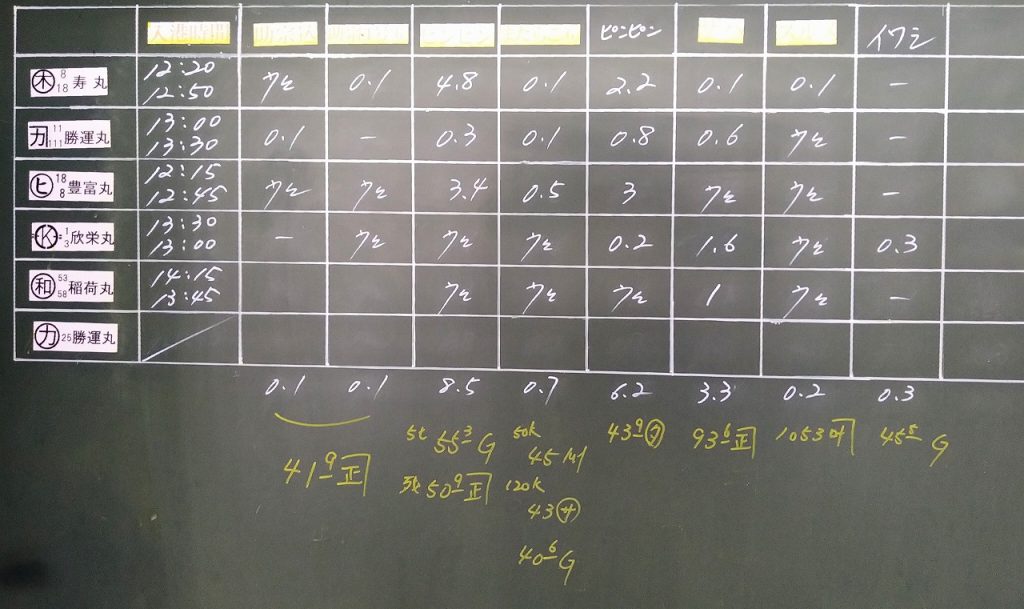 入港時間 ピンピン イワシ
木 8 18 寿丸 12:20 12:50 ウセ 0.1 4.8 0.1 2.2 0.1 0.1 -
カ 11 111 勝運丸 13:00 13:30 0.1 - 0.3 0.1 0.8 0.6 ウセ -
ヒ 18 8 豊富丸 12:15 12:45 ウセ ウセ 3.4 0.5 3 ウセ ウセ -
K 1 3 欣栄丸 13:30 13:00 - ウセ ウセ ウセ 0.2 1.6 ウセ 0.3
和 53 58 稲荷丸 14:15 13:45 ウセ ウセ ウセ 1 ウセ -
カ 25 勝運丸
0.1 0.1 8.5 0.7 6.2 3.3 0.2 0.3
41 9 正
5t 55 3 G
3t 50 9 正
50k
45
120k
43 サ
40 6 G
43 9
93 6 正
1053
45 5 G